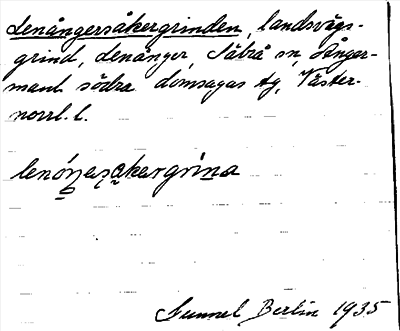 Lenångersåkergrinden, landsvägs-
grind, Lenånger, Säbrå sn, Ånger-
manl. södra domsagas tg, Väster-
norrl. l.
lenóŋeṣakergrina
Gunnel Berlin 1935